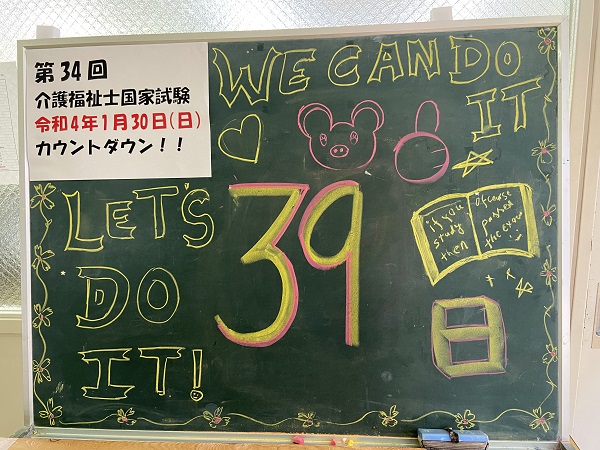 第34回
介護福祉士国家試験
令和4年1月30日(日)
カウントダウン！！
WE CAN DO
IT
LET'S
DO
IT!
39
日
if you
study
then
of course
passed
the exam